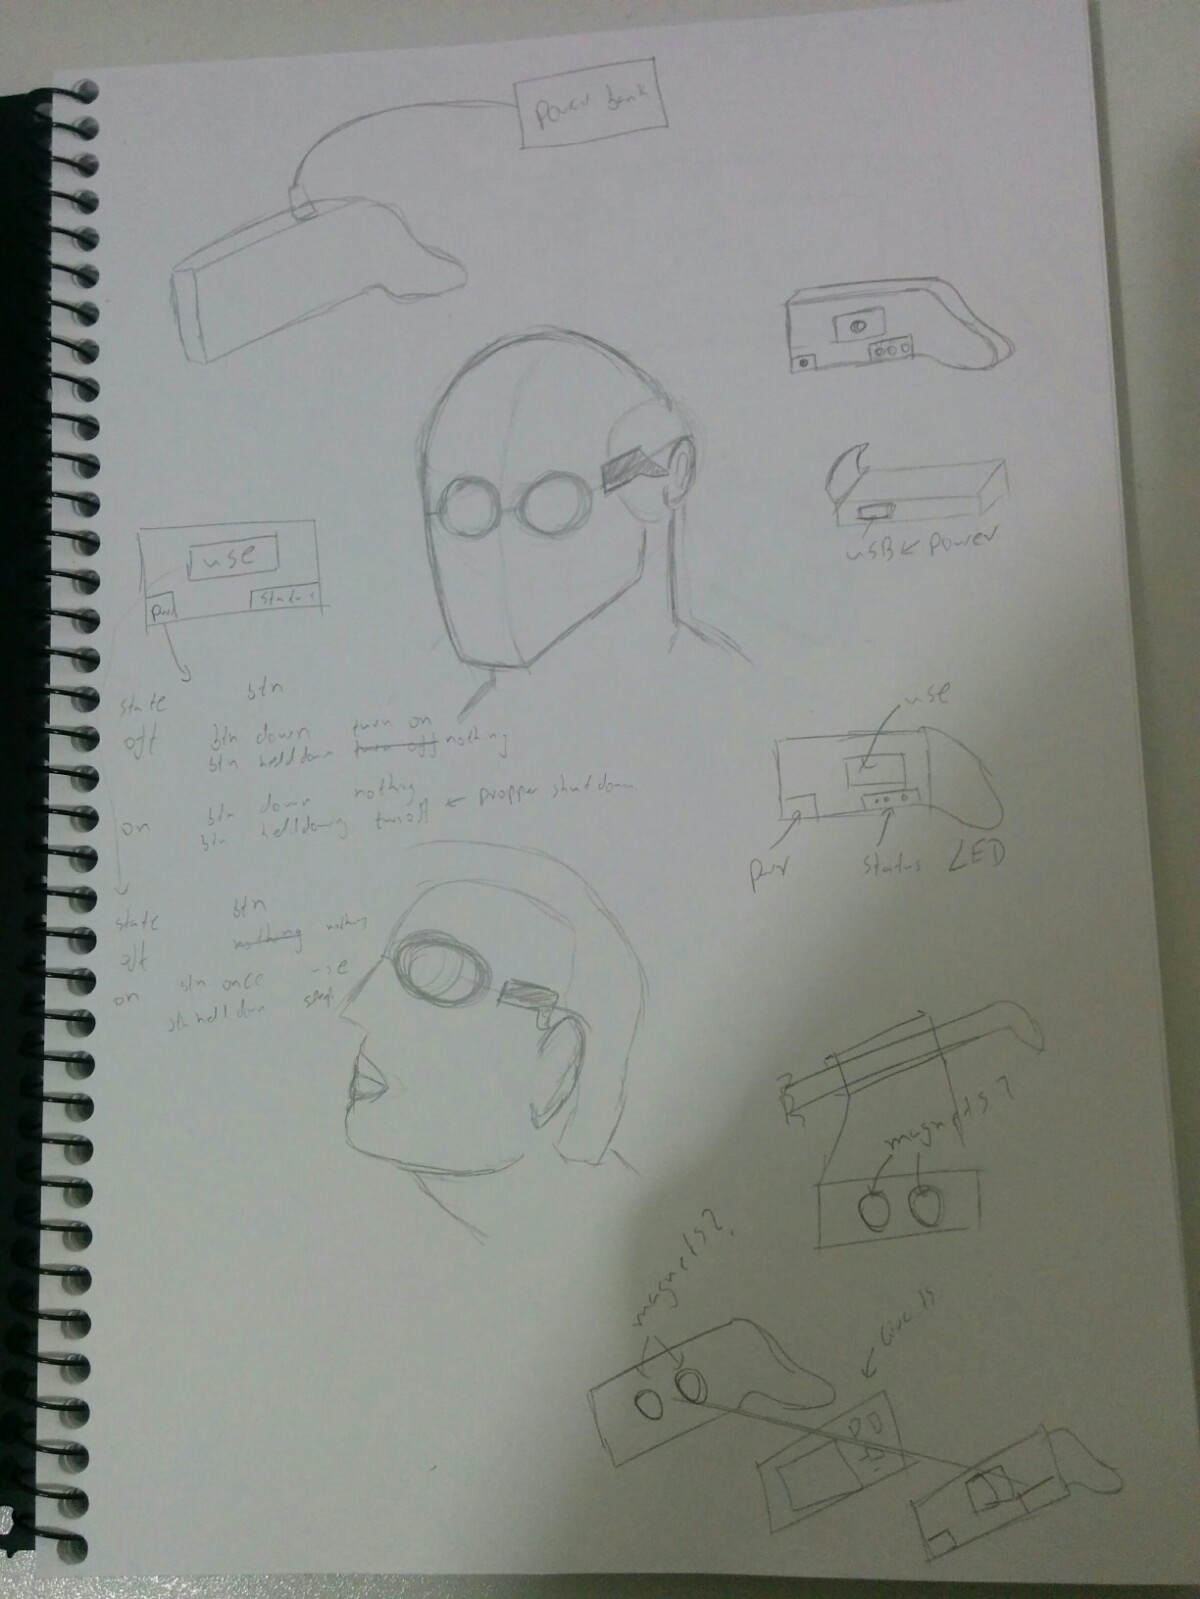 power bank
USB ← power
use
pwr
status
state btn
off btn down turn on
btn helddown turn off nothing
on btn down nothing
btn helldowng turnoff ← propper shutdown
use
pwr
status LED
state btn
off nothing nothing
on btn once use
btn helldown
magnets?
magnets?
circuits